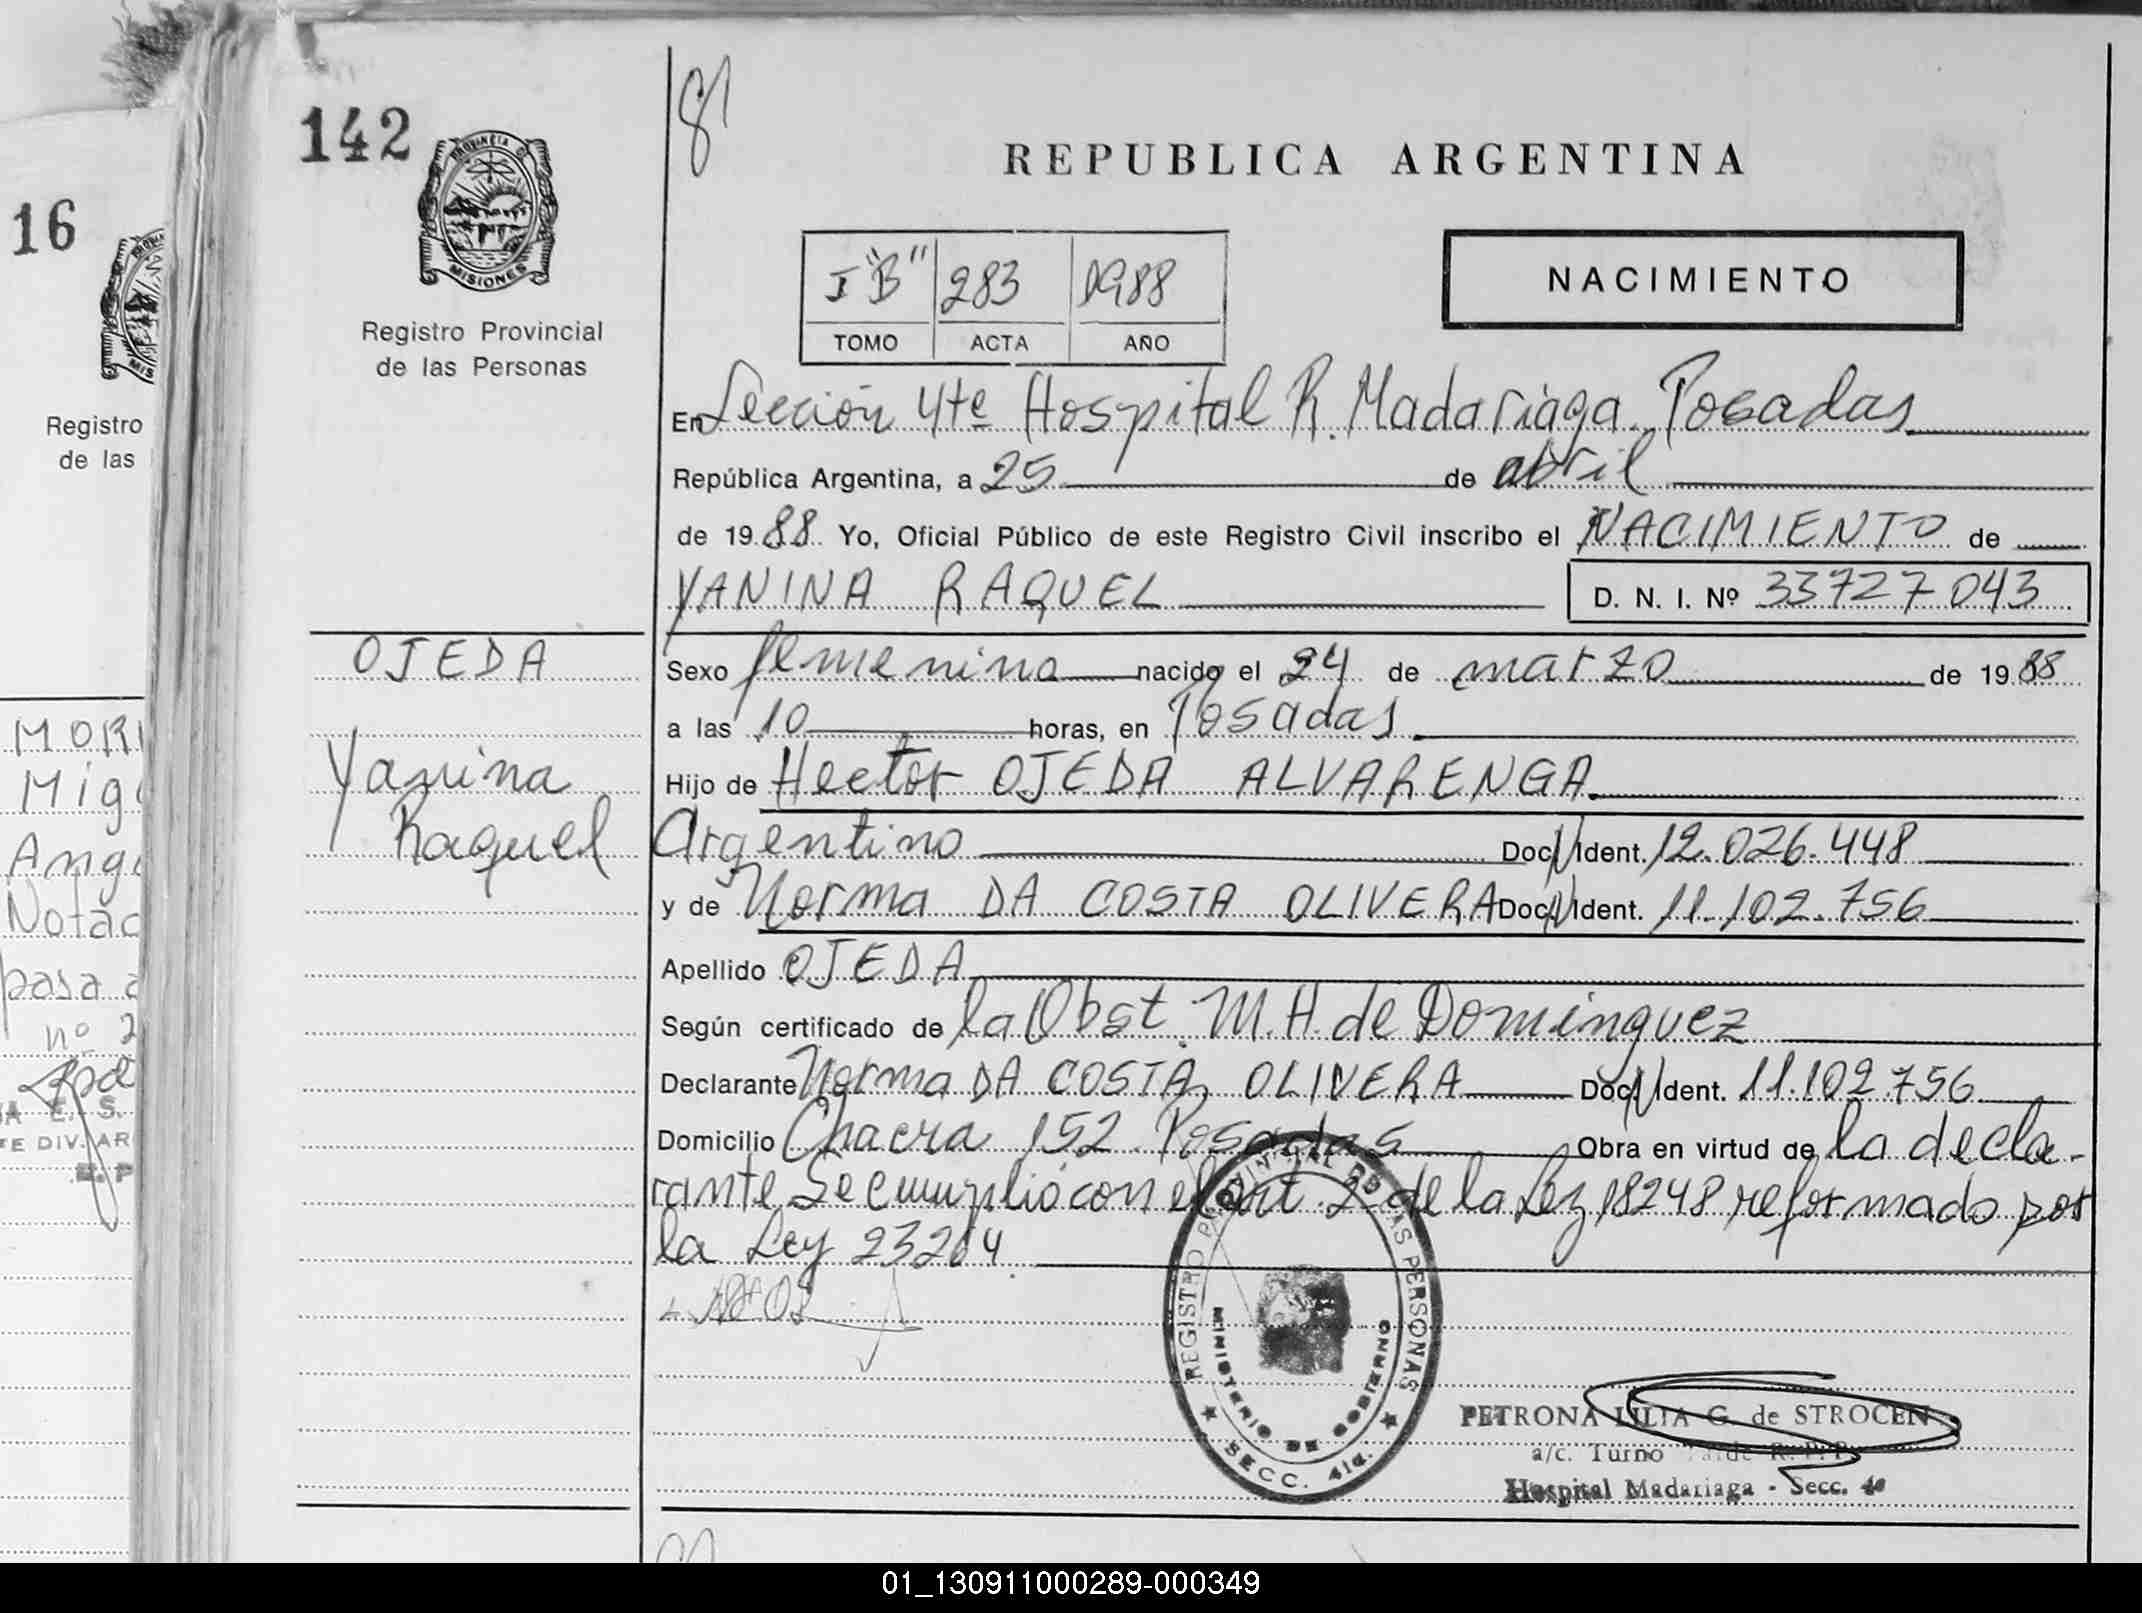 142
PROVINCIA D
MISIONES
Registro Provincial
de las Personas
16
MIS
Registro
de las
REPUBLICA ARGENTINA
I "B" 283 1988
TOMO ACTA AÑO
NACIMIENTO
En Sección 4ta Hospital R. Madariaga Posadas
República Argentina, a 25 de abril
de 1988 Yo, Oficial Público de este Registro Civil inscribo el NACIMIENTO de
YANINA RAQUEL D. N. I. Nº 33727043
OJEDA
Yanina
Raquel
Sexo femenino nacido el 24 de marzo de 1988
a las 10 horas, en Posadas
Hijo de Hector OJEDA ALVARENGA
Argentino Doc. N Ident. 12.026.448
y de Norma DA COSTA OLIVERA Doc. N Ident. 11.102.756
Apellido OJEDA
Según certificado de la Obst. M.H. de Dominguez
Declarante Norma DA COSTA OLIVERA Doc. N Ident. 11.102.756
Domicilio Chacra 152 Posadas Obra en virtud de la decla-
rante Se cumplió con el art. 2 de la Ley 18248 reformado por
la Ley 23264
REGISTRO PROVINCIAL DE LAS PERSONAS
MINISTERIO DE GOBIERNO
SECC. 4ta.
PETRONA LILIA G. de STROCEN
a/c. Turno R. P. P.
Hospital Madariaga - Secc. 4a
MORI
Mig
Ang
Notac
pasa a
nº 2
E. S.
DIV. AR
01_130911000289-000349